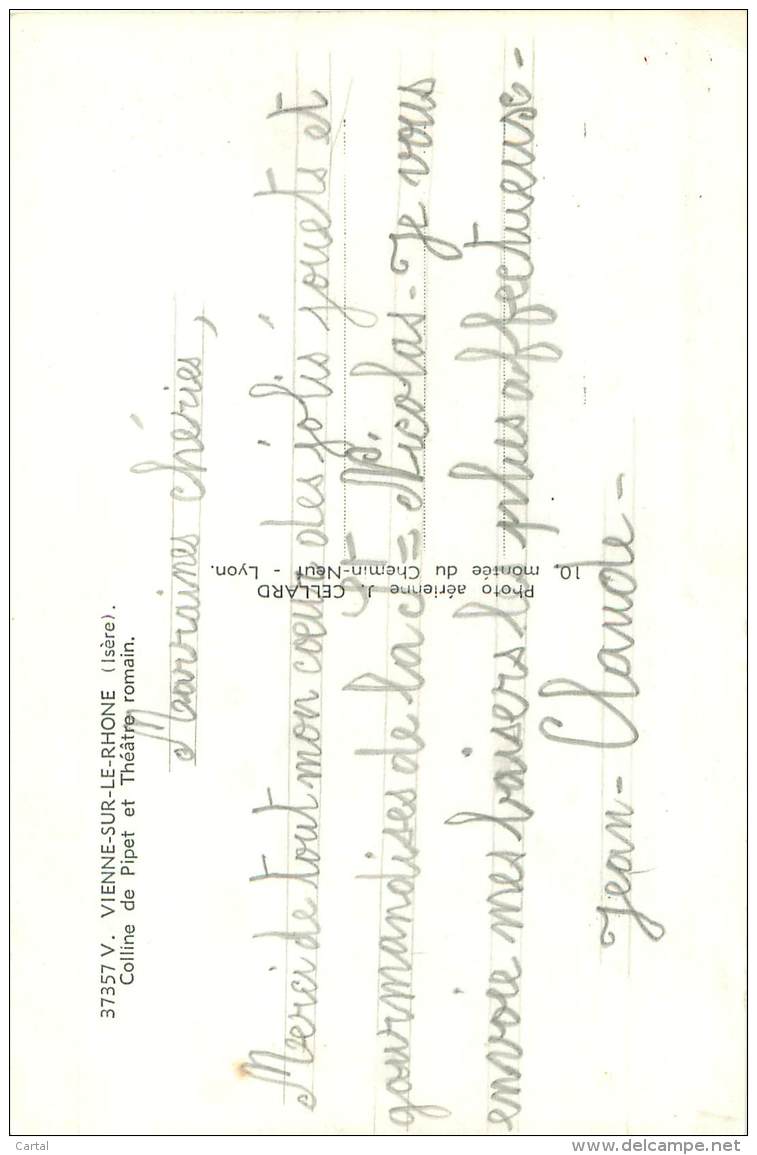 37357 V. VIENNE-SUR-LE-RHONE (Isère).
Colline de Pipet et Théâtre romain.
Marraines chéries,
Merci de tout mon coeur des jolis jouets et
gourmandises de la St = Nicolas - Je vous
envoie mes baisers les plus affectueuse -
Jean - Claude -
Photo aérienne J. CELLARD
10, montée du Chemin-Neuf - Lyon.
Cartal
www.delcampe.net